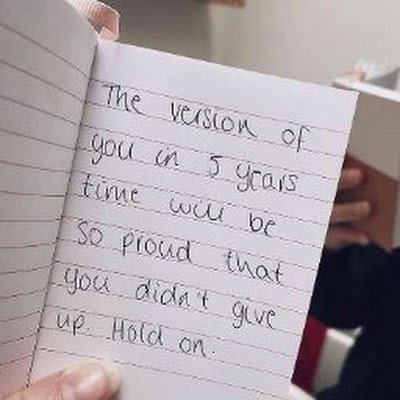 The version of
you in 5 years
time will be
so proud that
you didn't give
up. Hold on.